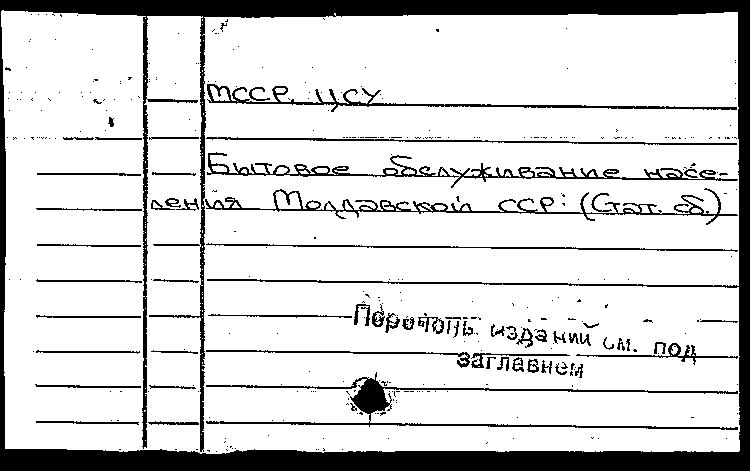 МССР. ЦСУ
Бытовое обслуживание насе-
ления Молдавской ССР: (Стат. сб.)
Перечень изданий см. под
заглавием